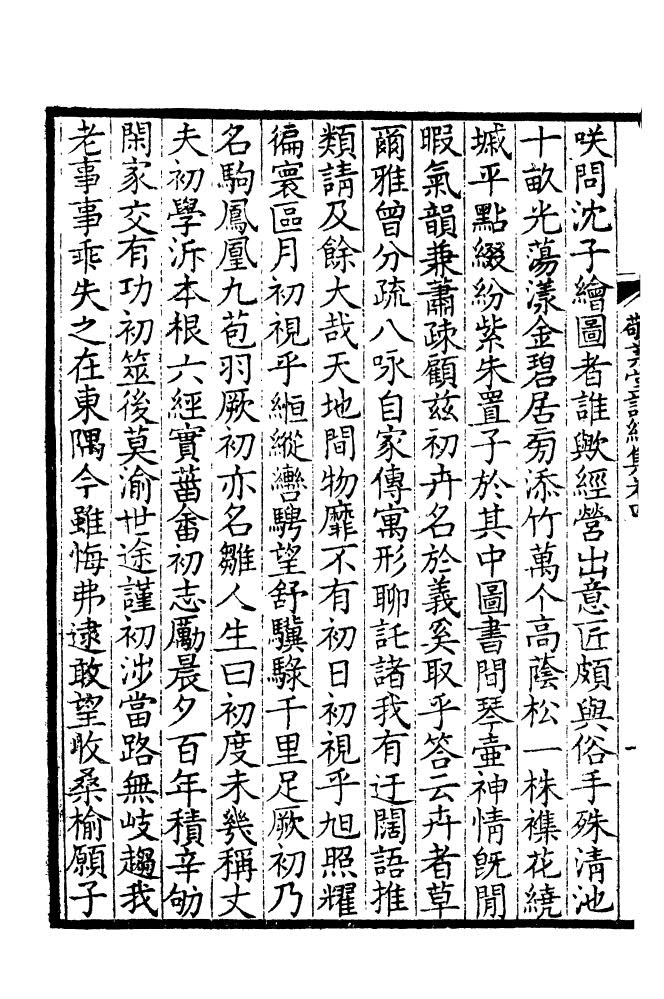 咲問沈子繪圖者誰歟經營出意匠頗與俗手殊清池
十畝光蕩漾金碧居旁添竹萬个高蔭松一株襍花繞
堿平點綴紛紫朱置子於其中圖書間琴壷神情旣閒
暇氣韻兼蕭疎顧兹初卉名於義奚取乎答云卉者草
爾雅曾分疏八咏自家傳寓形聊託諸我有迂闊語推
類請及餘大哉天地間物靡不有初日初視乎旭照耀
徧寰區月初視乎縆縱轡騁望舒驥騄千里足厥初乃
名駒鳳凰九苞羽厥初亦名雛人生曰初度未幾稱丈
夫初學泝本根六經實菑畬初志勵晨夕百年積辛劬
閑家交有功初筮後莫渝世途謹初涉當路無岐趨我
老事事乖失之在東隅今雖悔弗逮敢望收桑榆願子
敬業堂詩續集卷四
一